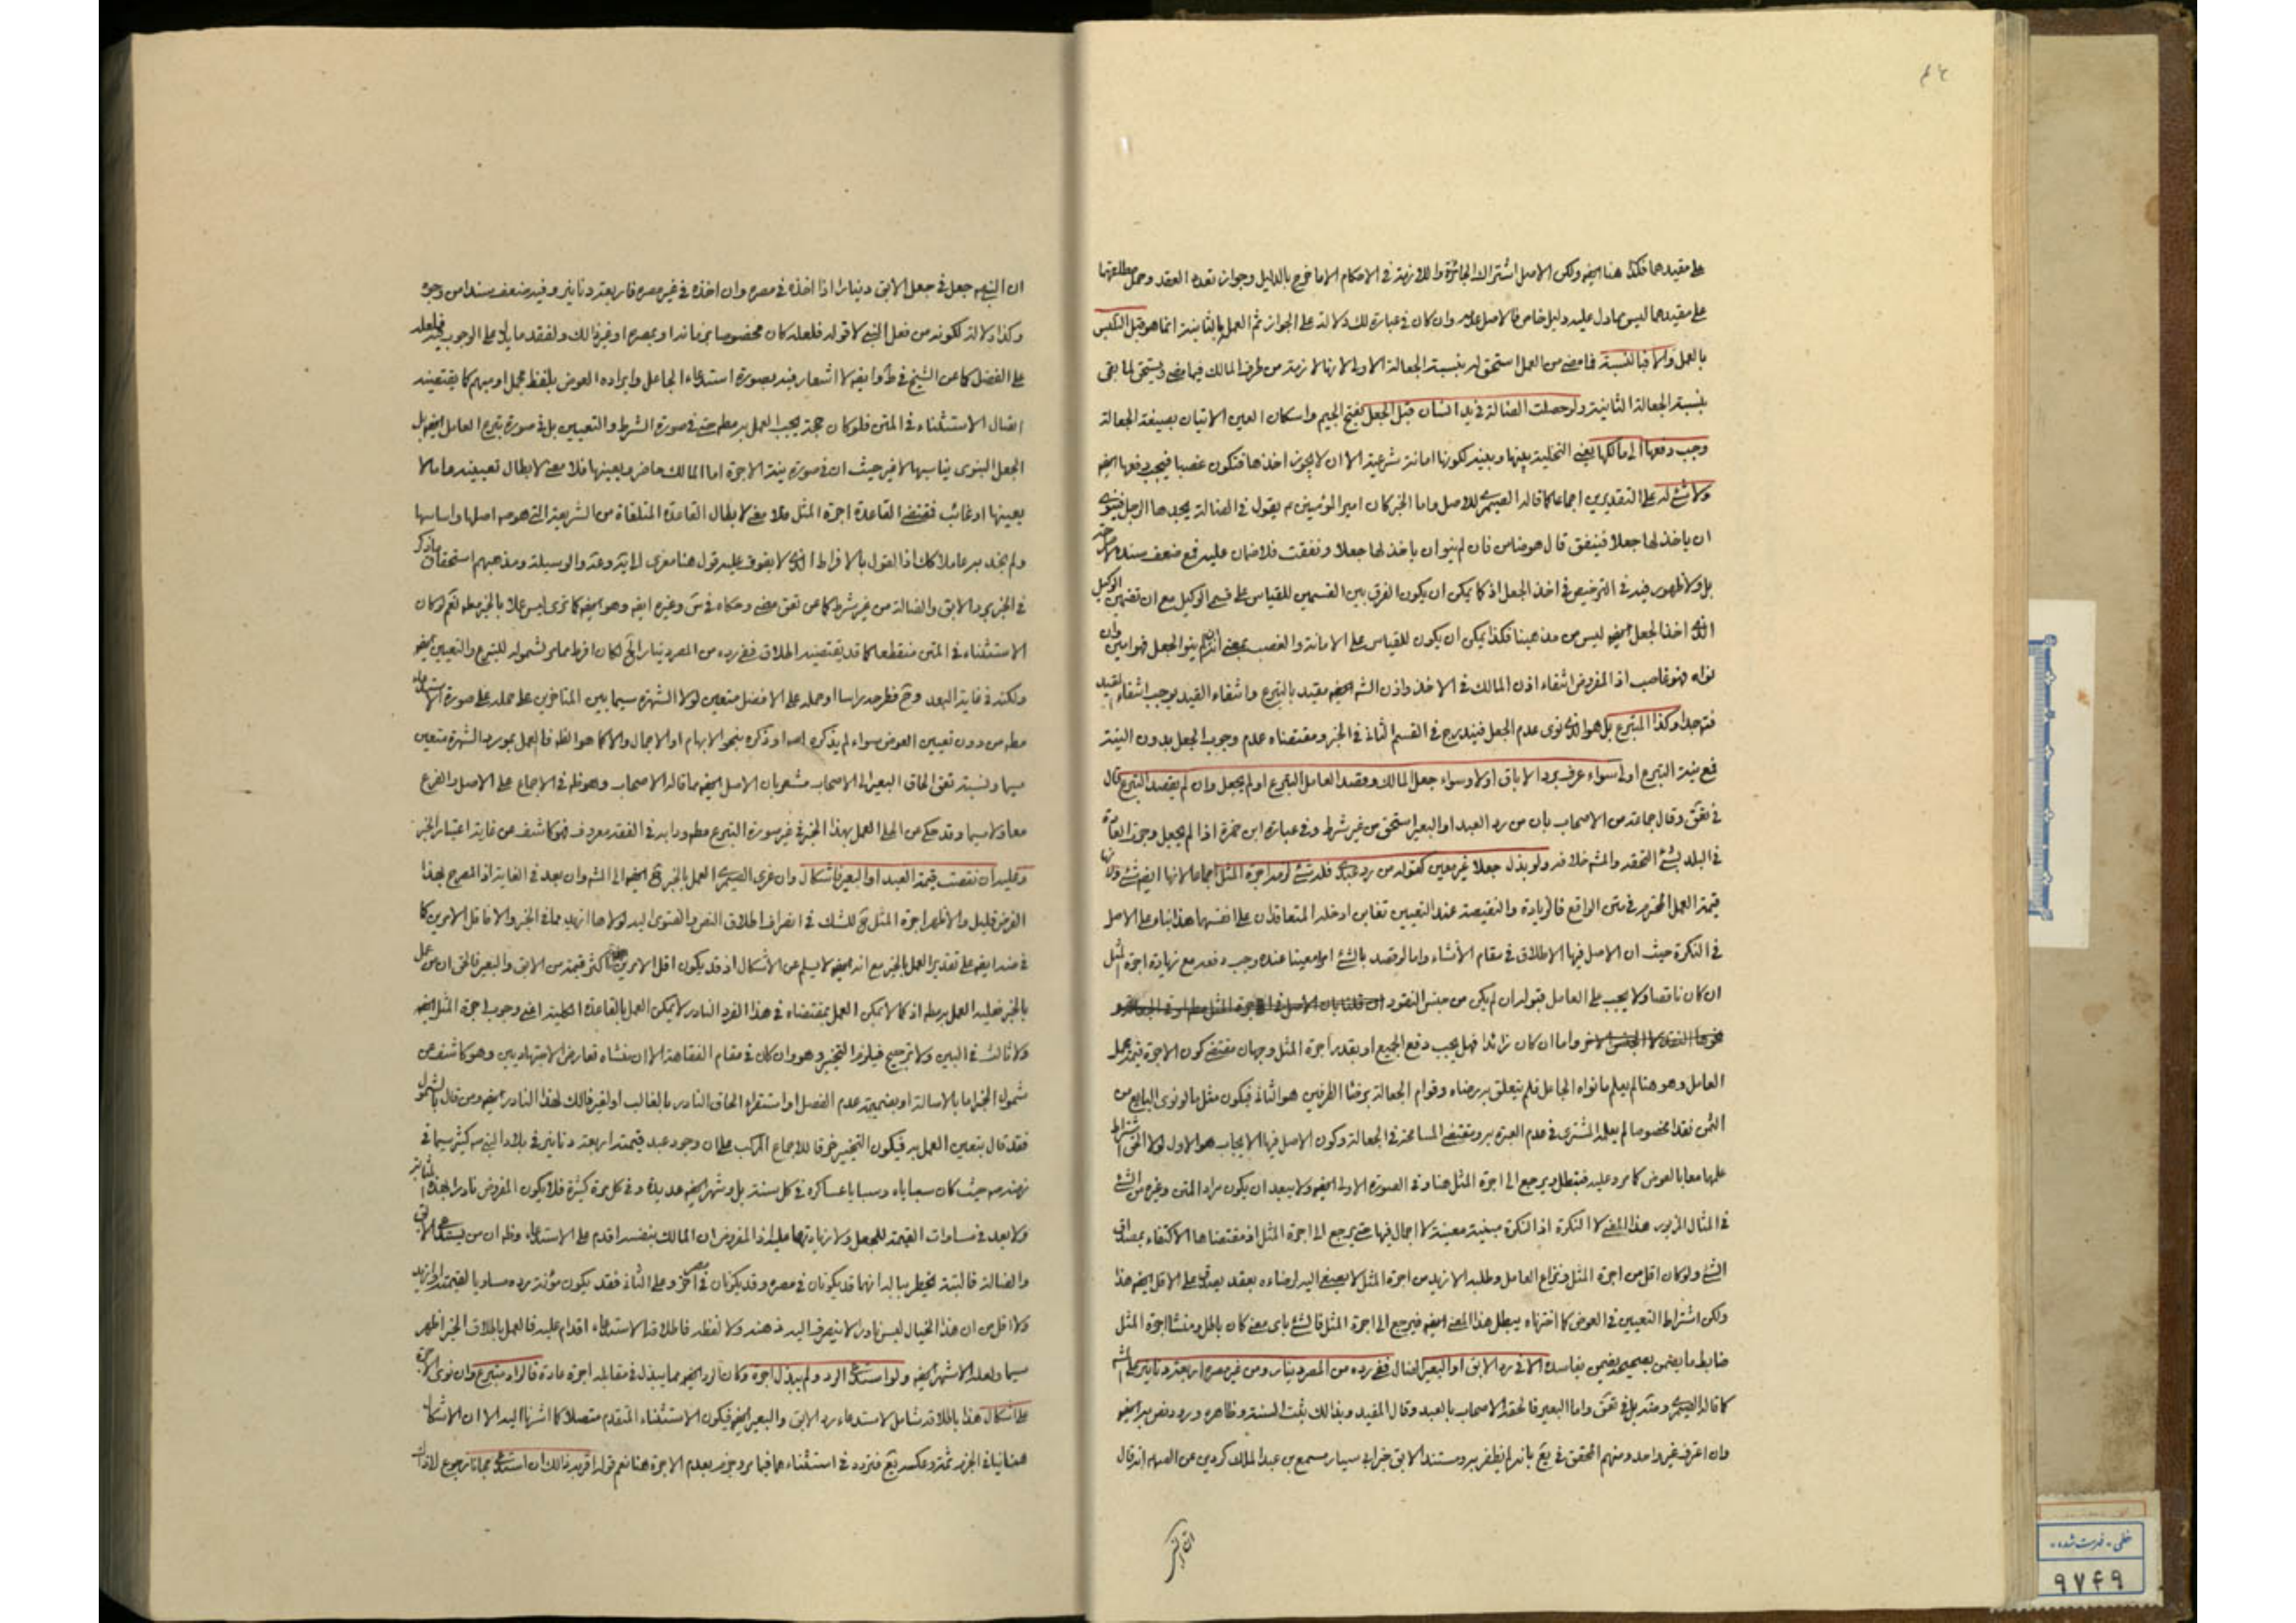 على مقيدهما فكذا هنا ايضا ولكن الاصل اشتراك الجائزة واللازمة في الاحكام الا ما خرج بالدليل وجواز تعدد العقد وحمل مطلقها
على مقيدهما ليس مما دل عليه دليل خاص فالاصل عدمه وان كان في عبارة لك دلالة على الجواز ثم العمل بالثانية انما هو قبل التلبس
بالعمل والا فبالنسبة فما مضى من العمل استحق له بنسبة الجعالة الاولى لانها لازمة من طرف المالك فيما مضى ويستحق لما بقى
بنسبة الجعالة الثانية ولو حصلت الضالة في يد انسان قبل الجعل بفتح الجيم واسكان العين الاتيان بصيغة الجعالة
وجب دفعها الى مالكها يعنى التخلية بينها وبينه لكونها امانة شرعية الا ان لا يجوز اخذها فتكون غصبا فيجب دفعها ايضا
ولا شئ له على التقديرين اجماعا كما قاله الصيمرى للاصل واما الخبر كان امير المؤمنين ع يقول في الضالة يجدها الرجل فينوى
ان ياخذ لها جعلا فينفق قال هو ضامن فان لم ينو ان ياخذ لها جعلا ونفقت فلا ضمان عليه فمع ضعف سنده
بل ولا ظهور فيه في الترخيص في اخذ الجعل اذ كما يمكن ان يكون الفرق بين القسمين للقياس على قسمى الوكيل مع ان تضمين الوكيل
الذى اخذ الجعل ايضا ليس من مذهبنا فكذا يمكن ان يكون للقياس على الامانة والغصب بمعنى انه ان لم ينو الجعل فهو امين وان
نواه فهو غاصب اذ المفروض انتفاء اذن المالك في الاخذ واذن الشرع ايضا مقيد بالتبرع وانتفاء القيد يوجب انتفاء المقيد
فتدبر وكذا المتبرع بل هو الذى نوى عدم الجعل فيندرج في القسم الثانى في الخبر ومقتضاه عدم وجوب الجعل بدون النية
فمع نية التبرع اولى سواء عرف برد الاباق اولا وسواء جعل المالك وقصد العامل التبرع او لم يجعل وان لم يقصد التبرع قال
في تفق وقال جماعة من الاصحاب بان من رد العبد او البعير استحق من غير شرط وفي عبارة ابن حمزة اذا لم يجعل وجرت العادة
في البلد بشئ استحقه والمشهور خلافه ولو بذل جعلا غير معين كقوله من رد عبدى فله شئ لزمه اجرة المثل اجماعا لانها ايضا شئ ولانها
قيمة العمل المحترم في متن الواقع فالزيادة والنقيصة عند التعيين تغابن ادخله المتعاقدان على انفسهما هذا بناء على الاصل
في النكرة حيث ان الاصل فيها الاطلاق في مقام الانشاء واما لو قصد بالشئ امرا معينا عنده وجب دفعه مع زيادة اجرة المثل
ان كان ناقصا ولا يجب على العامل قبوله ان لم يكن من جنس النقود
واما ان كان زائدا فهل يجب دفع الجميع او بقدر اجرة المثل وجهان مقتضى كون الاجرة قيمة عمل
العامل وهو هنا لم يعلم ما نواه الجاعل فلم يتعلق به رضاه وقوام الجعالة برضا الطرفين هو الثانى فيكون مثل ما لو نوى البايع من
الثمن نقدا مخصوصا لم يعلمه المشترى في عدم العبرة به ومقتضى المسامحة في الجعالة وكون الاصل فيها الايجاب هو الاول لولا اشتراط
علمهما معا بالعوض كما مر وعليه فتبطل ويرجع الى اجرة المثل هنا وفي الصورة الاولى ايضا ولا يبعد ان يكون مراد المتن وغيره من الشئ
في المثال المزبور هذا المعنى لا النكرة اذ النكرة مبنية معينة لا اجمال فيها حتى يرجع الى اجرة المثل اذ مقتضاها الاكتفاء بمصداق
الشئ ولو كان اقل من اجرة المثل ونزاع العامل وطلبه الازيد من اجرة المثل لا يصغى اليه لرضاه بعقد يصدق على الاقل ايضا هذا
ولكن اشتراط التعيين في العوض كما اخترناه يبطل هذا المعنى ايضا فيرجع الى اجرة المثل فالشئ باى معنى كان باطل ومنشا اجرة المثل
ضابطة ما يضمن بصحيحه يضمن بفاسده الا في رد الابق او البعير الضال ففى رده من المصر دينار ومن غير مصره اربعة دنانير على
كما قاله الصيمرى ومثله بل في تفق واما البعير فالحقه الاصحاب بالعبد وقال المفيد وبذلك ثبتت السنة وظاهره ورود نص به ايضا
وان اعترف غير واحد ومنهم المحقق في يع بانه لم يظفر به ومستند الابق خبر ابى سيار مسمع بن عبد الملك كردين عن الص ع انه قال
ان النبى
ان النبى ص جعل في جعل الابق دينارا اذا اخذه في مصره وان اخذه في غير مصره فاربعة دنانير وفيه ضعف سندا من وجوه
وكذا دلالة لكونه من فعل النبى لا قوله فلعله كان مخصوصا بزمانه او بمصره او غير ذلك ولفقد ما يدل على الوجوب فيه
على الفضل كما عن الشيخ في ط وايضا لا اشعار فيه بصورة استدعاء الجاعل وايراده العوض بلفظ مجمل او مبهم كما يقتضيه
اتصال الاستثناء في المتن فلو كان حجة يجب العمل به مطلقا حتى في صورة الشرط والتعيين بل في صورة تبرع العامل ايضا بل
الجعل النبوى يناسبها لا غير حيث ان في صورة نية الاجرة اما المالك حاضر ويعينها فلا معنى لابطال تعيينه او لا
يعينها او غائب فمقتضى القاعدة اجرة المثل فلا معنى لابطال القاعدة المتلقاة من الشريعة التى هو ص اصلها واساسها
ولم نجد به عاملا كك اذ القول بالافراط الذى لا يفوق عليه قول هنا معزى الى ية وعة والوسيلة ومذهبهم استحقاق ما ذكر
في الخبر برد الابق والضالة من غير شرط كما عن تفق مضى وحكاه في س وغيره ايضا وهو ايضا كما ترى ليس عملا بالخبر مطلقا نعم لو كان
الاستثناء في المتن منقطعا كما قد يقتضيه اطلاق ففى رده من المصر دينار الخ لكان افرط مما مر لشموله للتبرع والتعيين ايضا
ولكنه في غاية البعد وح فطرحه راسا او حمله على الافضل متعين لولا الشهرة سيما بين المتاخرين على حمله على صورة الاستدعاء
مطلقا من دون تعيين العوض سواء لم يذكره اصلا او ذكره بنحو الابهام او الاجمال والا كما هو الظاهر فالعمل بمورد الشهرة متعين
سيما ونسبة تفق الحاق البعير الى الاصحاب مشعر بان الاصل ايضا مما قاله الاصحاب وهو ظاهر في الاجماع على الاصل والفرع
معا ولا سيما وقد حكى عن الحلى العمل بهذا الخبر في غير صورة التبرع مطلقا ودابه في الفقه معروف فهو كاشف عن غاية اعتبار الخبر
وعليه ان نقصت قيمة العبد او البعير فاشكال وان عزى الصيمرى العمل بالخبر ح ايضا الى المشهور وان بعد في الغاية اذ المصرح بهذا
الفرض قليل والاظهر اجرة المثل ح للشك في انصراف اطلاق النص والفتوى اليه لولا هذا ازيد مما في الخبر والا فاقل الامرين كما
في ضد ايضا على تقدير العمل بالخبر مع انه ايضا لا يسلم عن الاشكال اذ قد يكون اقل الامرين اكثر قيمة من الابق والبعير فالحق ان من عمل
بالخبر فعليه العمل به مطلقا اذ كما لا يمكن العمل بمقتضاه في هذا الفرد النادر لا يمكن العمل بالقاعدة الكلية اعنى وجوب اجرة المثل ايضا
ولا ثالث في البين ولا ترجيح فيلزم التخيير وهو وان كان في مقام الفقاهة الا ان منشاه تعارض الاجتهاديين وهو كاشف عن
شمول الخبر اما بالاصالة او بضميمة عدم الفصل او استقراء الحاق النادر بالغالب او لغير ذلك لهذا النادر ايضا ومن قال بالشمول
فقد قال بتعين العمل به فيكون التخيير خرقا للاجماع المركب على ان وجود عبد قيمته اربعة دنانير في بلاد النبى ص كثير سيما في
زمنه ص حيث كان سباياه وسبايا عساكره في كل سنة بل وشهر ايضا عديدة وفي كل مرة كثيرة فلا يكون المفروض نادرا بهذه المثابة
ولا بعد في مساوات القيمة للجعل ولا زيادتها عليه اذ المفروض ان المالك بنفسه اقدم على الاستدعاء وظاهر ان من يستدعى الابق
والضالة فالبتة يخطر بباله انهما قد يكونان في مصره وقد يكونان في مصر اخر وعلى الثانى فقد يكون مؤنة رده مساويا لقيمته او ازيد
ولا اقل من ان هذا الخيال ليس نادرا لا ينصرف اليه ذهنه ولا لفظه فاطلاقه الاستدعاء اقدام عليه فالعمل باطلاق الخبر اظهر
سيما ولعله الاشهر ايضا ولو استدعى الرد ولم يبذل اجرة وكان الرد ايضا مما يبذل في مقابله اجرة عادة فالراد متبرع وان نوى الاجرة
على اشكال هذا باطلاقه شامل لاستدعاء رد الابق والبعير ايضا فيكون الاستثناء المتقدم متصلا كما اشرنا اليه الا ان الاشكال
هنا ينافى الجزم ثمة وعكسه يع فتردد في استثناءهما فيما مر وجزم بعدم الاجرة هنا نعم قوله اقربه ذلك ان استدعى مجانا رجوع
خطى - فهرست شده
٩٧٤٩